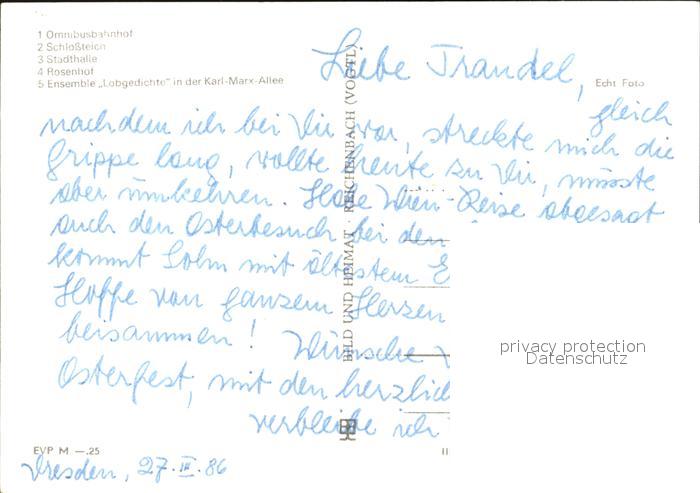 1 Omnibusbahnhof
2 Schloßteich
3 Stadthalle
4 Rosenhof
5 Ensemble „Lobgedichte" in der Karl-Marx-Allee
Echt Foto
Liebe Traudel,
gleich
nachdem ich bei Dir war, streckte mich die
Grippe lang, wollte heute zu Dir, müsste
aber umkehren. Habe Wien-Reise abgesagt
auch den Osterbesuch bei den
kommt Sohn mit ältestem E
Hoffe von ganzem Herzen
beisammen! Wünsche
Osterfest, mit den herzlich
verbleibe ich
BILD UND HEIMAT · REICHENBACH (VOGTL)
privacy protection
Datenschutz
EVP M —.25
II
Dresden, 27.III.86